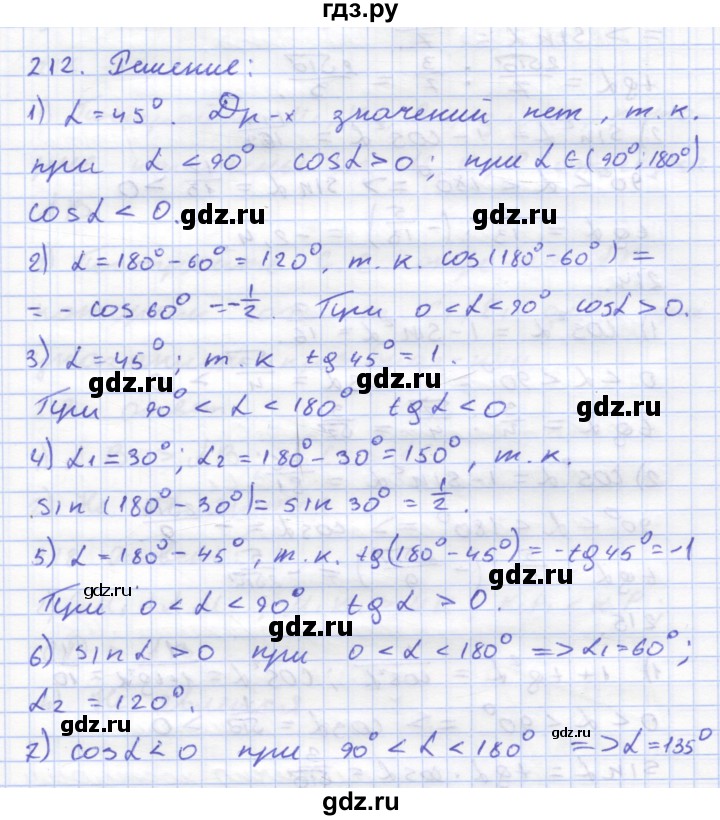 гдз.ру
212. Решение:
1) α = 45°. Др-х значений нет, т.к.
при α < 90° cosα > 0; при α ∈ (90°; 180°)
cosα < 0.
gdz.ru gdz.ru
2) α = 180° - 60° = 120°, т.к. cos(180° - 60°) =
= - cos 60° = -1/2. При 0 < α < 90° cosα > 0.
3) α = 45°; т.к tg 45° = 1.
gdz.ru gdz.ru
При 90° < α < 180° tgα < 0
gdz.ru
4) α1 = 30°; α2 = 180° - 30° = 150°, т.к.
sin (180° - 30°) = sin 30° = 1/2.
5) α = 180° - 45°, т.к. tg(180° - 45°) = -tg 45° = -1
gdz.ru gdz.ru
При 0 < α < 90° tg α > 0.
gdz.ru gdz.ru
6) sinα > 0 при 0 < α < 180° => α1 = 60°;
α2 = 120°.
gdz.ru gdz.ru
7) cosα < 0 при 90° < α < 180° => α = 135°
gdz.ru
gdz.ru